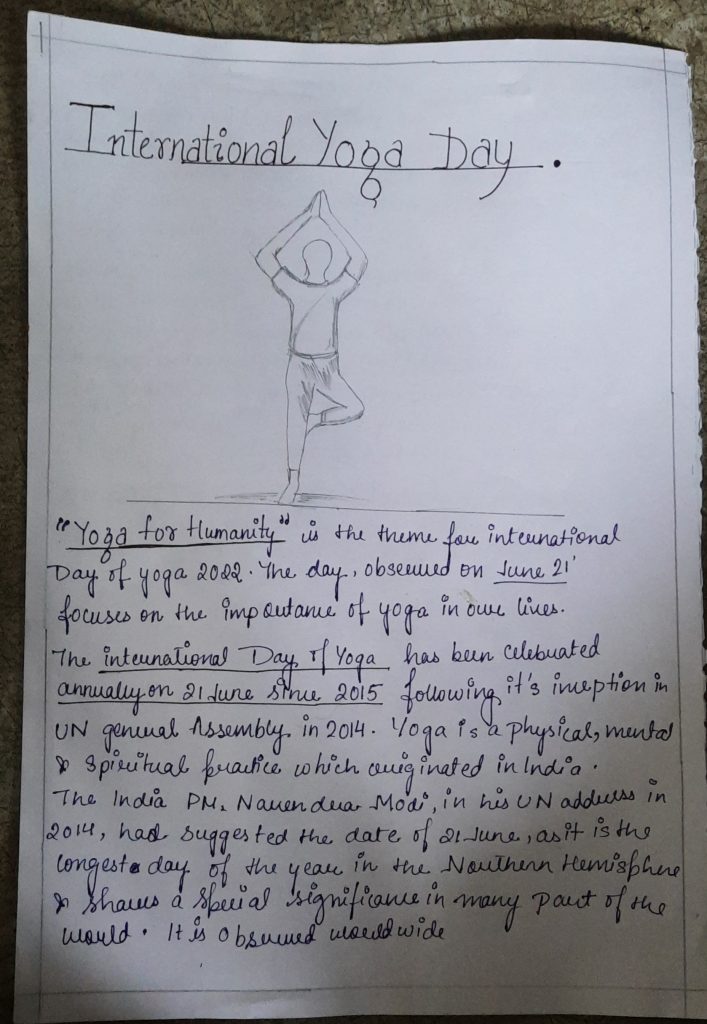 International Yoga Day.
"Yoga for Humanity" is the theme for international
Day of yoga 2022. The day, observed on June 21'
focuses on the importance of yoga in our lives.
The international Day of Yoga has been celebrated
annually on 21 June since 2015 following it's inception in
UN general Assembly in 2014. Yoga is a physical, mental
& spiritual practice which originated in India.
The India PM, Narendra Modi, in his UN address in
2014, had suggested the date of 21 June, as it is the
longest day of the year in the Northern Hemisphere
& shares a special significance in many part of the
world. It is observed worldwide